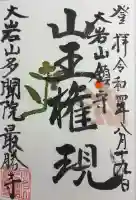 登拝令和四年八月十九日
大岩山鎮守
山王権現
大岩山多聞院最勝寺